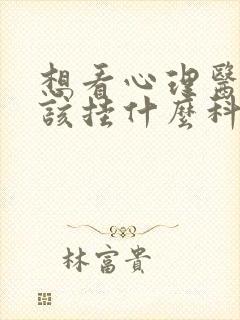 想看心理醫
該挂什麼科
林富貴